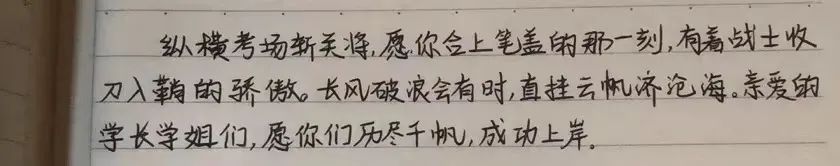 纵横考场斩关将,愿你合上笔盖的那一刻,有着战士收
刀入鞘的骄傲。长风破浪会有时,直挂云帆济沧海。亲爱的
学长学姐们,愿你们历尽千帆,成功上岸。